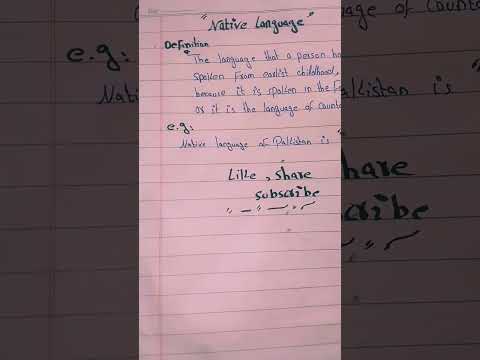 "Native Language"
Definition
The language that a person ha
spoken from earlist childhood,
because it is spoken in the
or it is the language of count
e.g:
Native language of Pakistan is
Like, share
subscribe